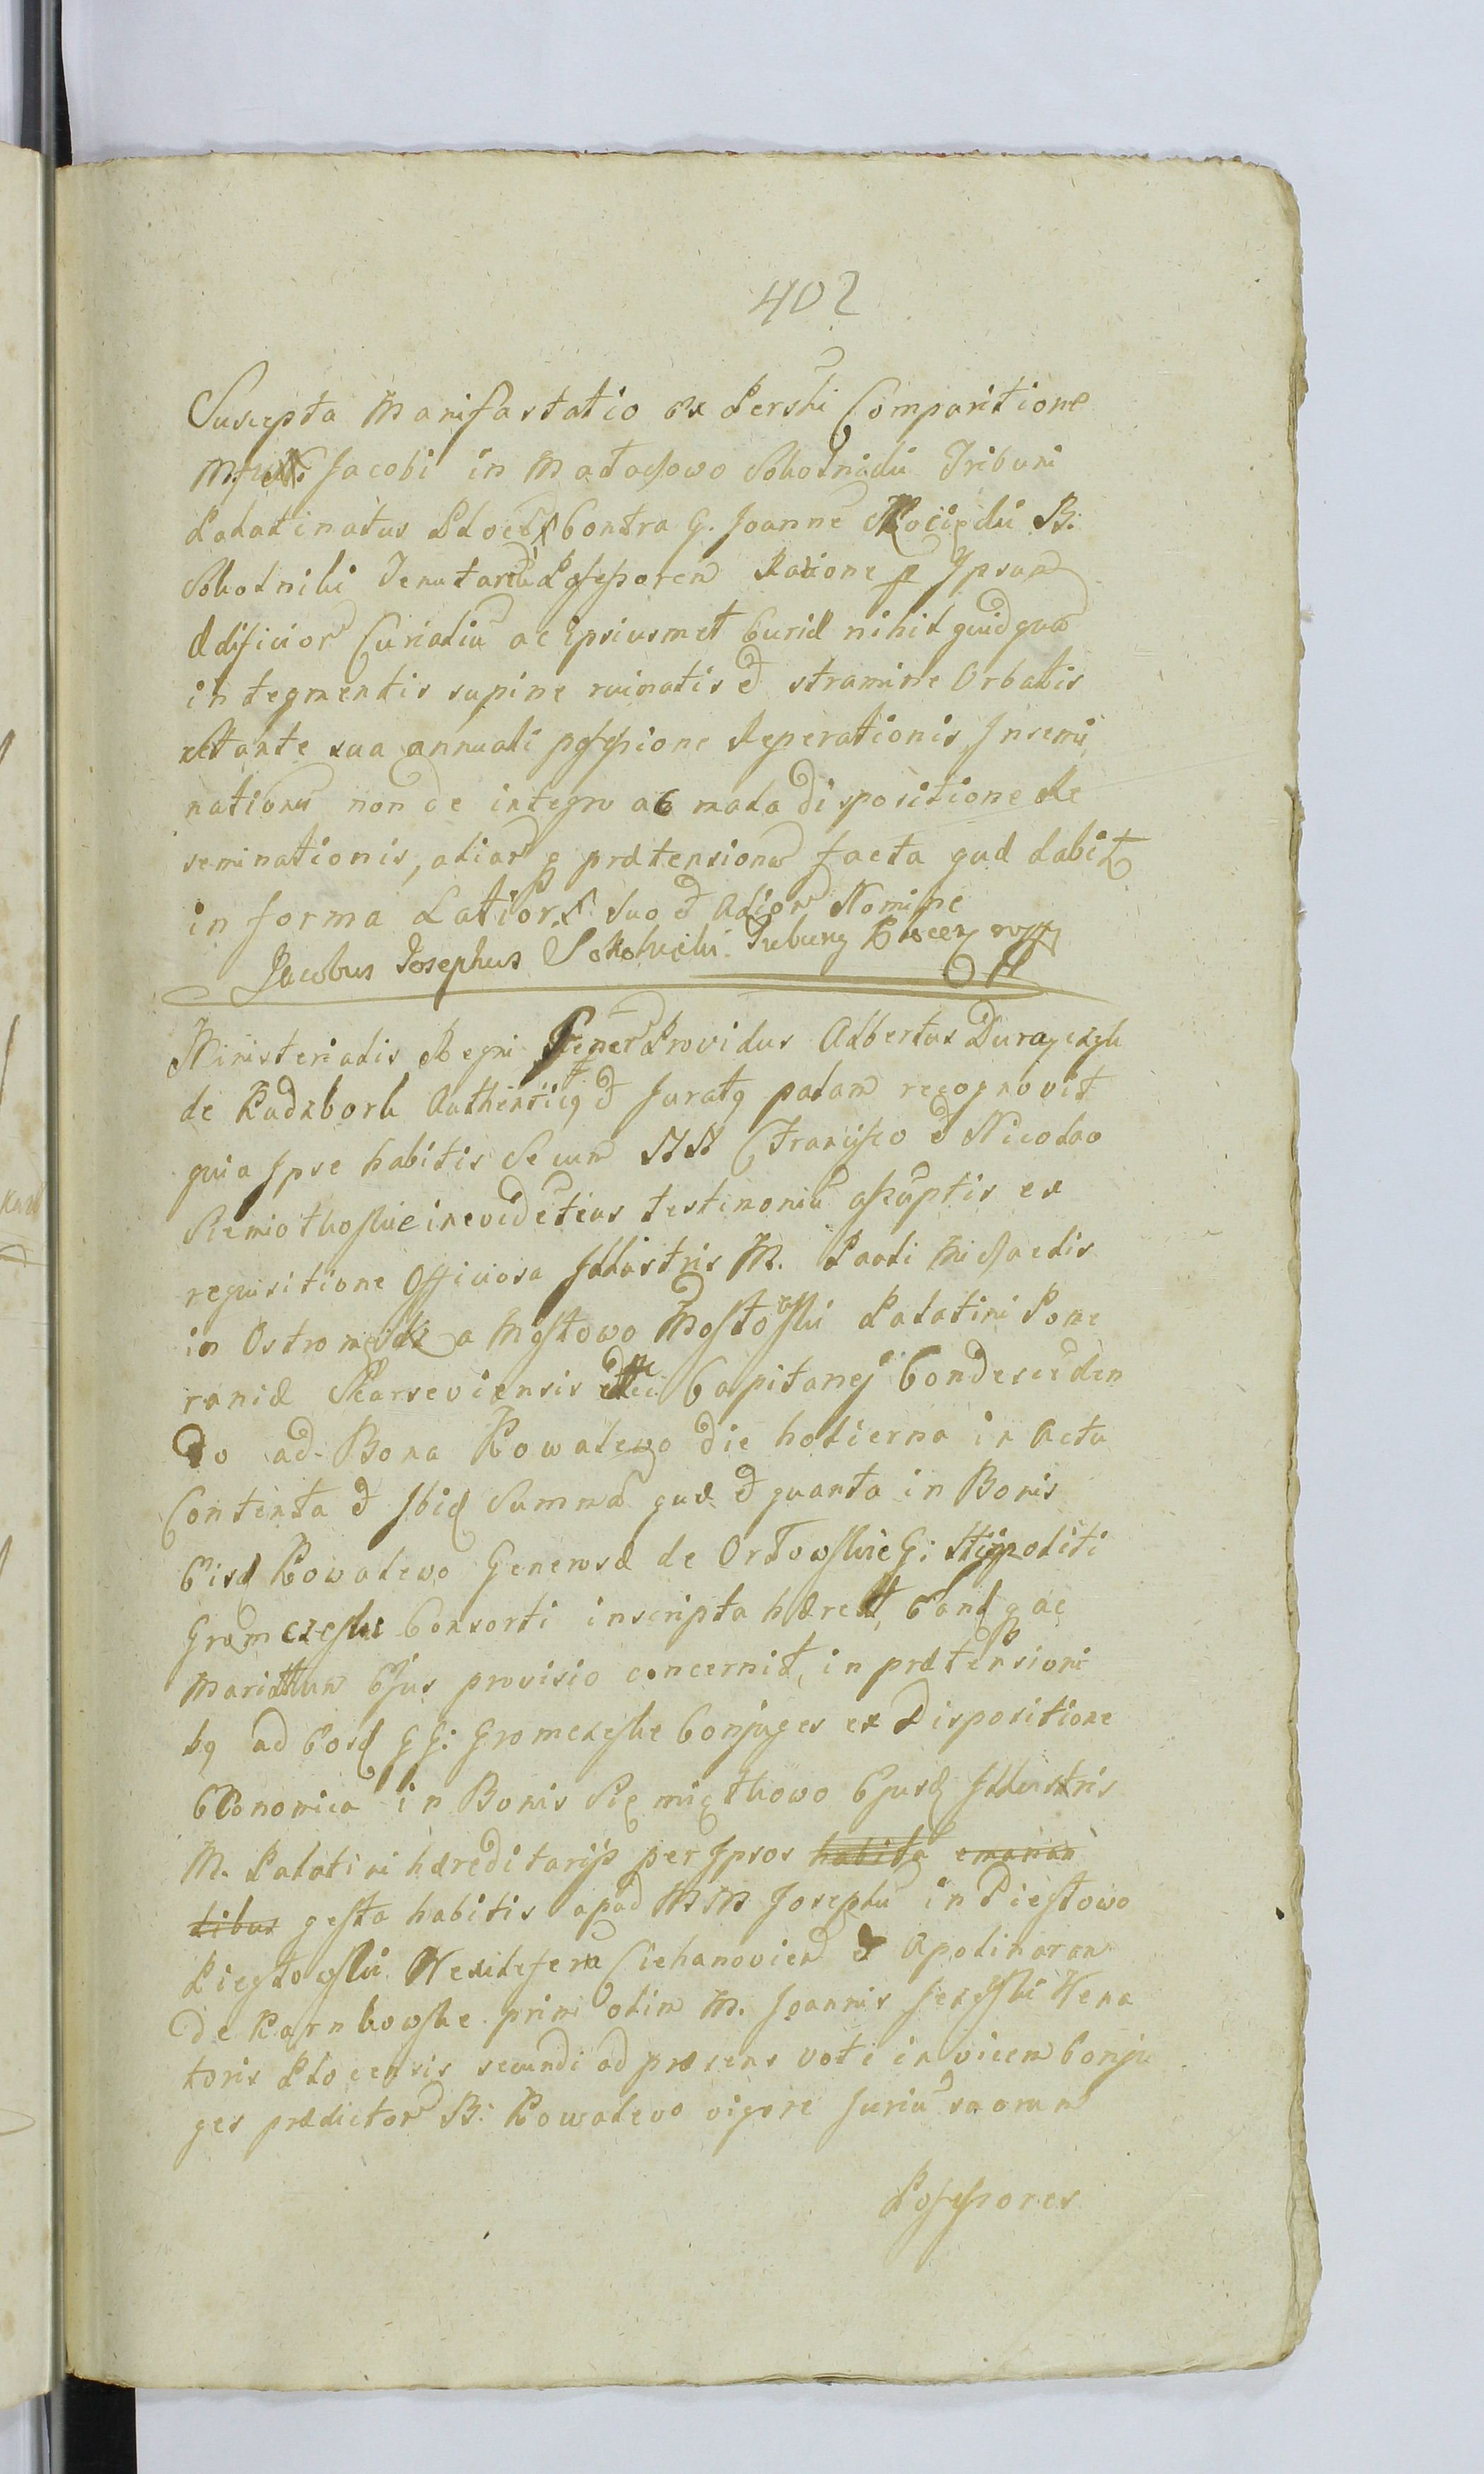 402
Suscepta Manifestatio ex Personli Comparitione
Mfci Jacobi in Małachowo Sokolnicki Tribuni
Palatinatus Plocen Contra G. Joanne Kocięcki B:
Sokolniki Tenutariu Possessorem Ratione p Ipsum
ædificior Curialiu ac Ipsiusmet Curiæ nihil quidqua
in tegmentis supine ruinatis et stramine Orbatis
restante sua annuali possesione Reperationis Insemi
nationis non de integro ac mala dispositione Re
seminationis, aliar q prætensionu facta quæ dabit
in forma Latiori. Suo et Alior Nomine
Jacobus Josephus Sokolnicki Tribung Płocen mpp
Ministerialis Regni Gener Providus Albertus Durayczyk
de Kuczbork Authenticq et Juratq palam recognovit
quia Ipse habitis Secum NN Francisco et Nicolao
Siemiotkoskie in evidetius testimoniu assuptis ex
requisitione Officiosa Illustris M. Pauli Michaelis
in Ostromecko a Mostowo Mostoski Palatini Pome
raniæ Skarseviensis etc Capitanej Condesceden
do ad Bona Kowalewo die hodierna in Actu
Contenta et Ibid Summa quæ et quanta in Bonis
Eisd Kowalewo Generosæ de Orłowskie G: Hippoliti
Gromczeski Consorti inscripta hæret, Eand q ac
Maritum Ejus provisio concernit, in prætensioni
bq ad Eosd GG: Gromczeskie Conjuges ex Dispositione
Economica in Bonis Siemiątkowo Ejusd Illustris
M. Palatini hæreditarijs per Ipsos habita emanan
tibus gesta habitis apud MM Josephu in Piestowo
Piestoski Vexiliferu Ciehanovien et Apolinaram
de Karnkowskie primi olim M. Joannis Jezeski Vena
toris Plocensis secundi ad præsens voti invicem Conju
ges prædictor B: Kowalewo vigore Juriu suorum
Possessores